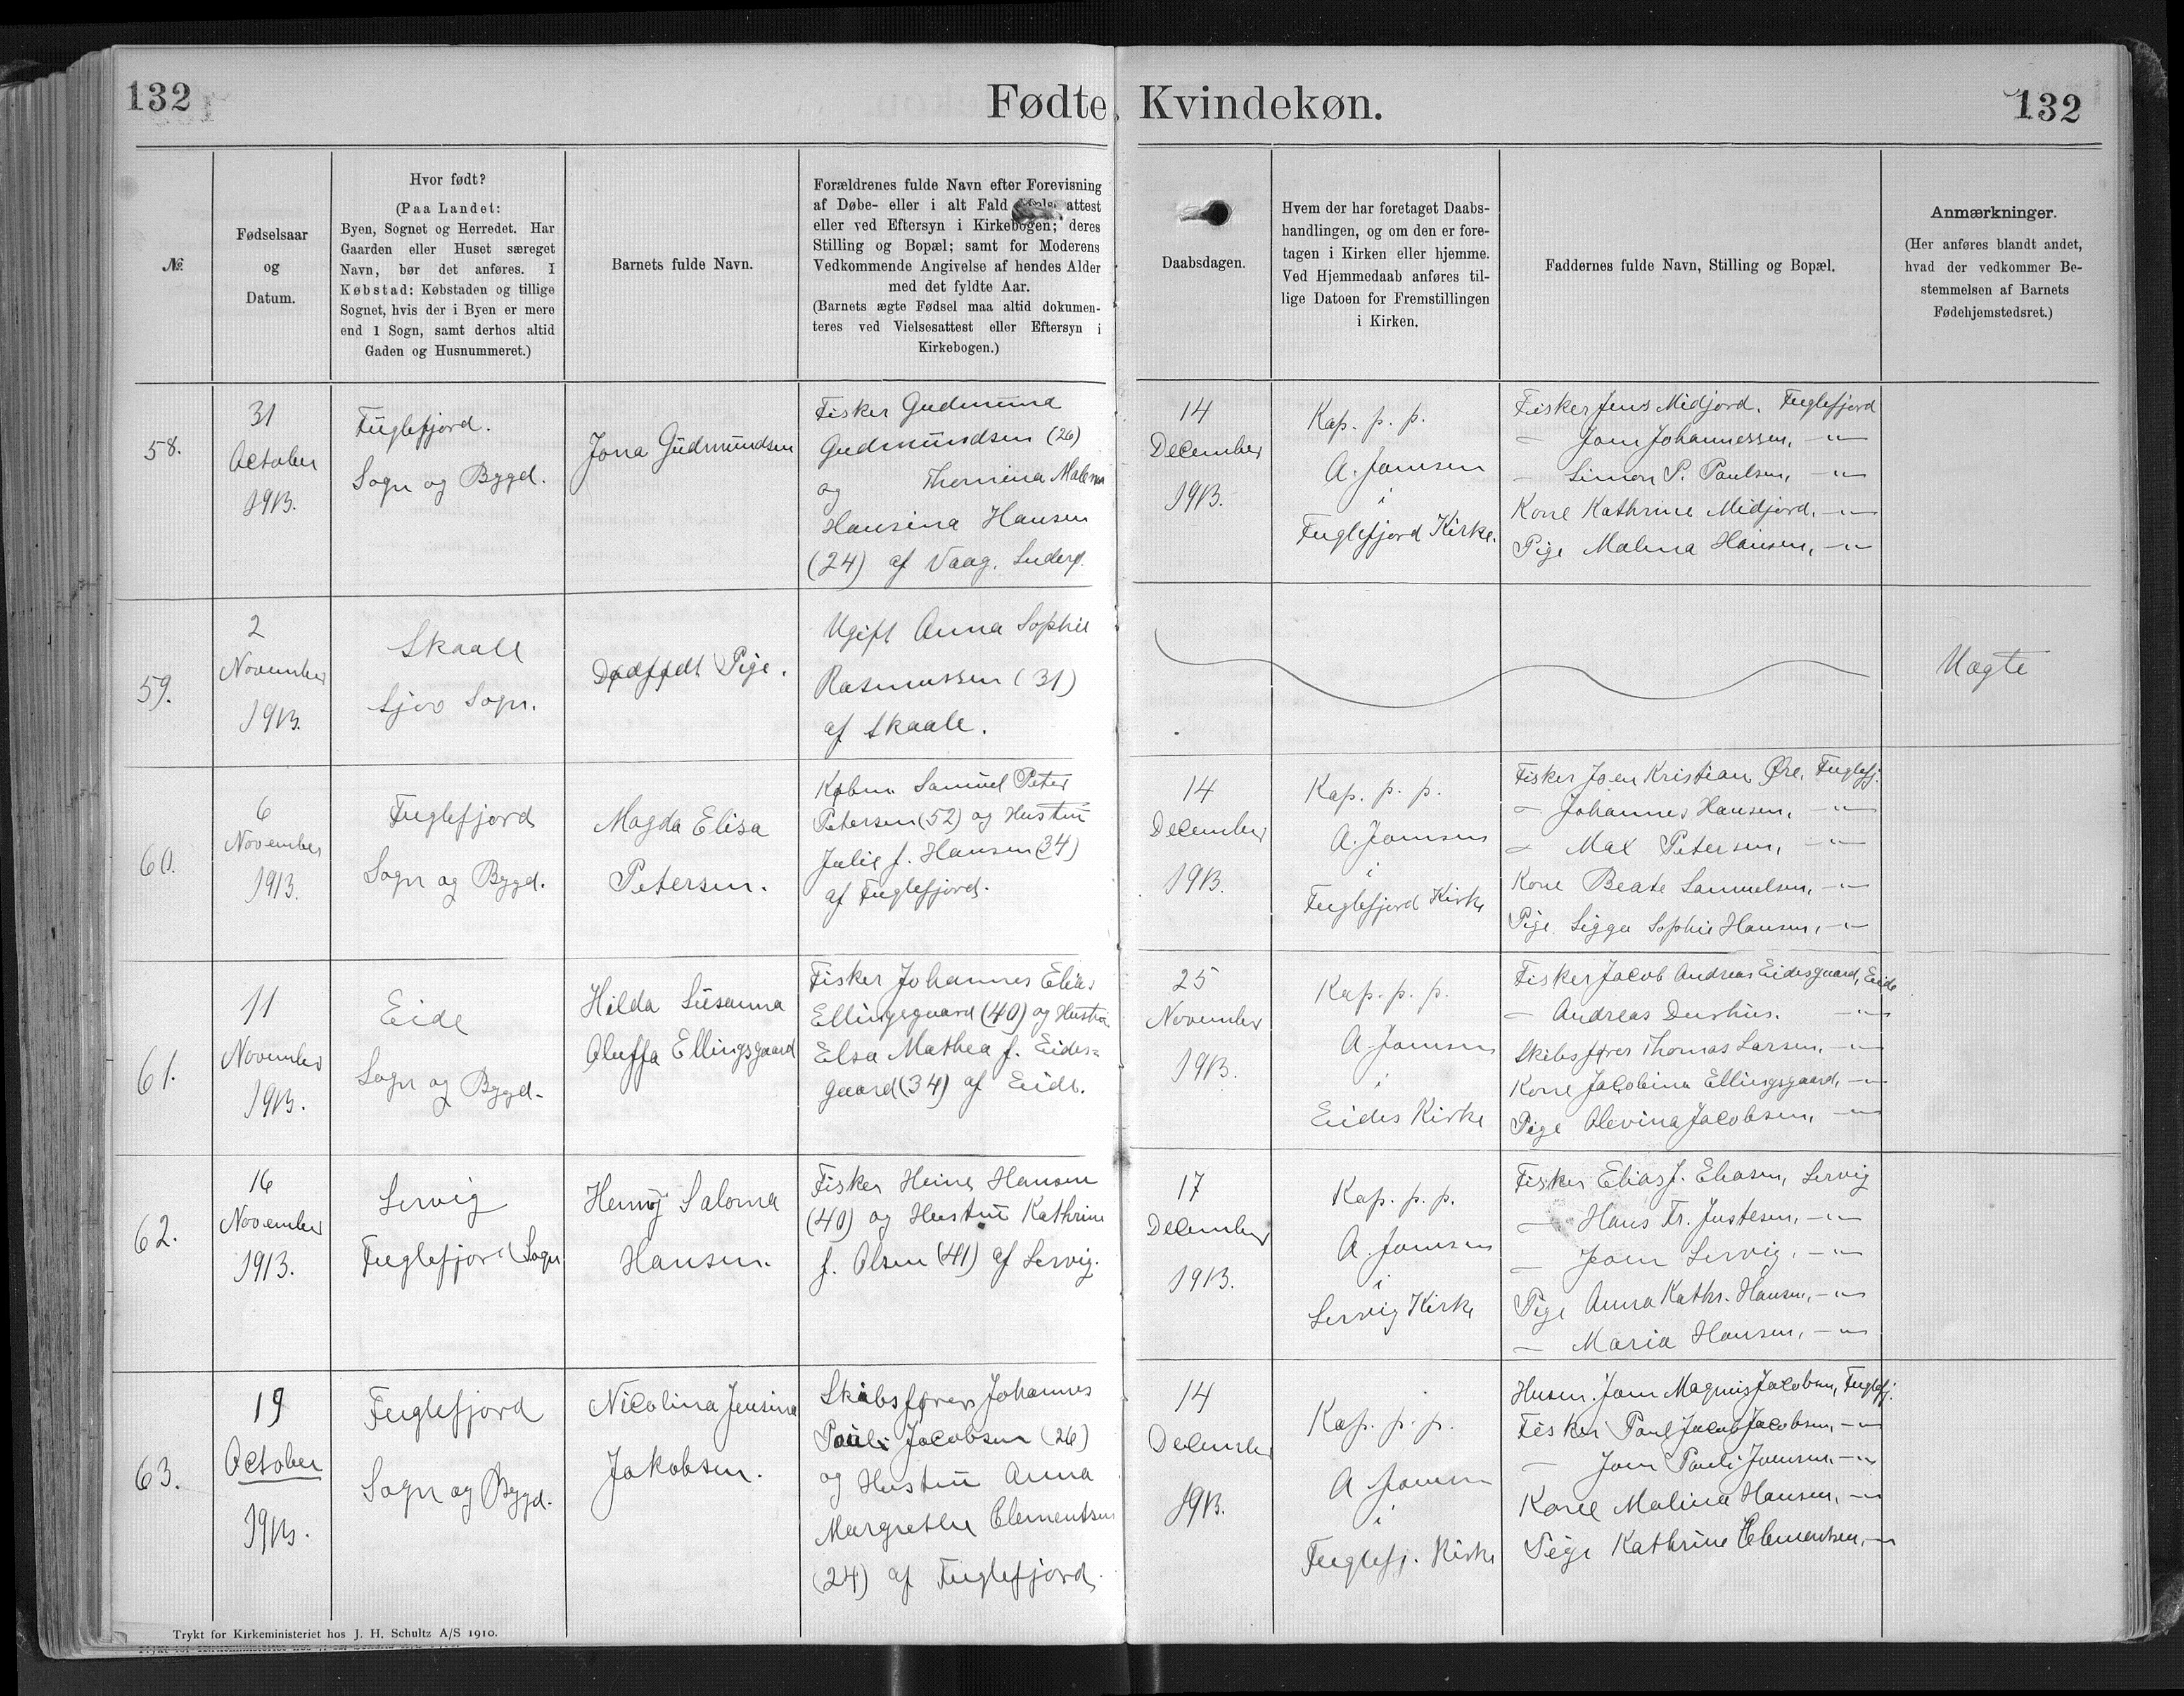 132
Fødte, Kvindekøn.
132
№
Fødselsaar
og
Datum.
Hvor født?
(Paa Landet:
Byen, Sognet og Herredet. Har
Gaarden eller Huset særeget
Navn, bør det anføres. I
Købstad: Købstaden og tillige
Sognet, hvis der i Byen er mere
end 1 Sogn, samt derhos altid
Gaden og Husnummeret.)
Barnets fulde Navn.
Forældrenes fulde Navn efter Forevisning
af Døbe- eller i alt Fald attest
eller ved Eftersyn i Kirkebogen; deres
Stilling og Bopæl; samt for Moderens
Vedkommende Angivelse af hendes Alder
med det fyldte Aar.
(Barnets ægte Fødsel maa altid dokumen-
teres ved Vielsesattest eller Eftersyn i
Kirkebogen.)
Daabsdagen.
Hvem der har foretaget Daabs-
handlingen, og om den er fore-
tagen i Kirken eller hjemme.
Ved Hjemmedaab anføres til-
lige Datoen for Fremstillingen
i Kirken.
Faddernes fulde Navn, Stilling og Bopæl.
Anmærkninger.
(Her anføres blandt andet,
hvad der vedkommer Be-
stemmelsen af Barnets
Fødehjemstedsret.)
58.
31
October
1913.
Fuglefjord.
Sogn og Bygd.
Jona Gudmundsen
Fisker Gudmund
Gudmundsen (26)
og Thomina Malena
Hansina Hansen
(24) af Vaag. Suderø.
14
December
1913.
Kap. p. p.
A. Joensen
i
Fuglefjord Kirke.
Fisker Jens Midjord. Fuglefjord
— Joen Johannessen, —"—
— Simon P. Paulsen, —"—
Kone Kathrine Midjord, —"—
Pige Malena Hansen, —"—
59.
2
November
1913.
Skaale
Sjov Sogn.
Dødfødt Pige.
Ugift Anna Sophie
Rasmussen (31)
af Skaale.
Uægte
60.
6
November
1913.
Fuglefjord
Sogn og Bygd.
Magda Elisa
Petersen.
Købm. Samuel Peter
Petersen (52) og Hustru
Julie f. Hansen (34)
af Fuglefjord.
14
December
1913.
Kap. p. p.
A. Joensen
i
Fuglefjord Kirke
Fisker Joen Kristian Øre, Fuglefj.
— Johannes Hansen, —"—
— Max Petersen, —"—
Kone Beate Samuelsen, —"—
Pige Sigga Sophie Hansen, —"—
61.
11
November
1913.
Eide
Sogn og Bygd.
Hilda Susanna
Oluffa Ellingsgaard
Fisker Johannes Elias
Ellingsgaard (40) og Hustru
Elsa Mathea f. Eides=
gaard (34) af Eide.
25
November
1913.
Kap. p. p.
A. Joensen
i
Eides Kirke
Fisker Jacob Andreas Eidesgaard, Eide
— Andreas Durhus. —"—
Skibsfører Thomas Larsen, —"—
Kone Jacobina Ellingsgaard, —"—
Pige Olevina Jacobsen, —"—
62.
16
November
1913.
Lervig
Fuglefjord Sogn
Henny Saloma
Hansen.
Fisker Heine Hansen
(40) og Hustru Kathrine
f. Olsen (41) af Lervig.
17
December
1913.
Kap. p. p.
A. Joensen
i
Lervig Kirke
Fisker Elias J. Eliasen, Lervig
— Hans Fr. Justesen, —"—
— Joen Lervig, —"—
Pige Anna Kathr. Hansen, —"—
— Maria Hansen, —"—
63.
19
October
1913.
Fuglefjord
Sogn og Bygd.
Nicolina Jensina
Jakobsen.
Skibsfører Johannes
Pauli Jacobsen (26)
og Hustru Anna
Margrethe Clementsen
(24) af Fuglefjord.
14
December
1913.
Kap. p. p.
A. Joensen
i
Fuglefj. Kirke
Husm. Joen Magnus Jacobsen, Fuglefj.
Fisker Poul Jacob Jacobsen, —"—
— Joen Pauli Joensen, —"—
Kone Malina Hansen, —"—
Pige Kathrine Clementsen, —"—
Trykt for Kirkeministeriet hos J. H. Schultz A/S 1910.